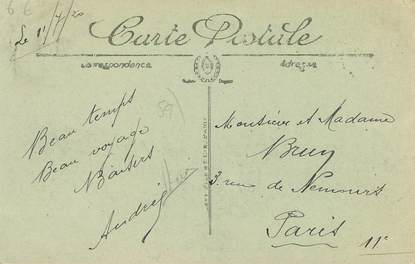 Le 11/7/20
Carte Postale
Correspondance
Adresse
59
Beau temps
Beau voyage
Baisers
André
Monsieur et Madame
Bruy
3. rue de Nemours
Paris
11e